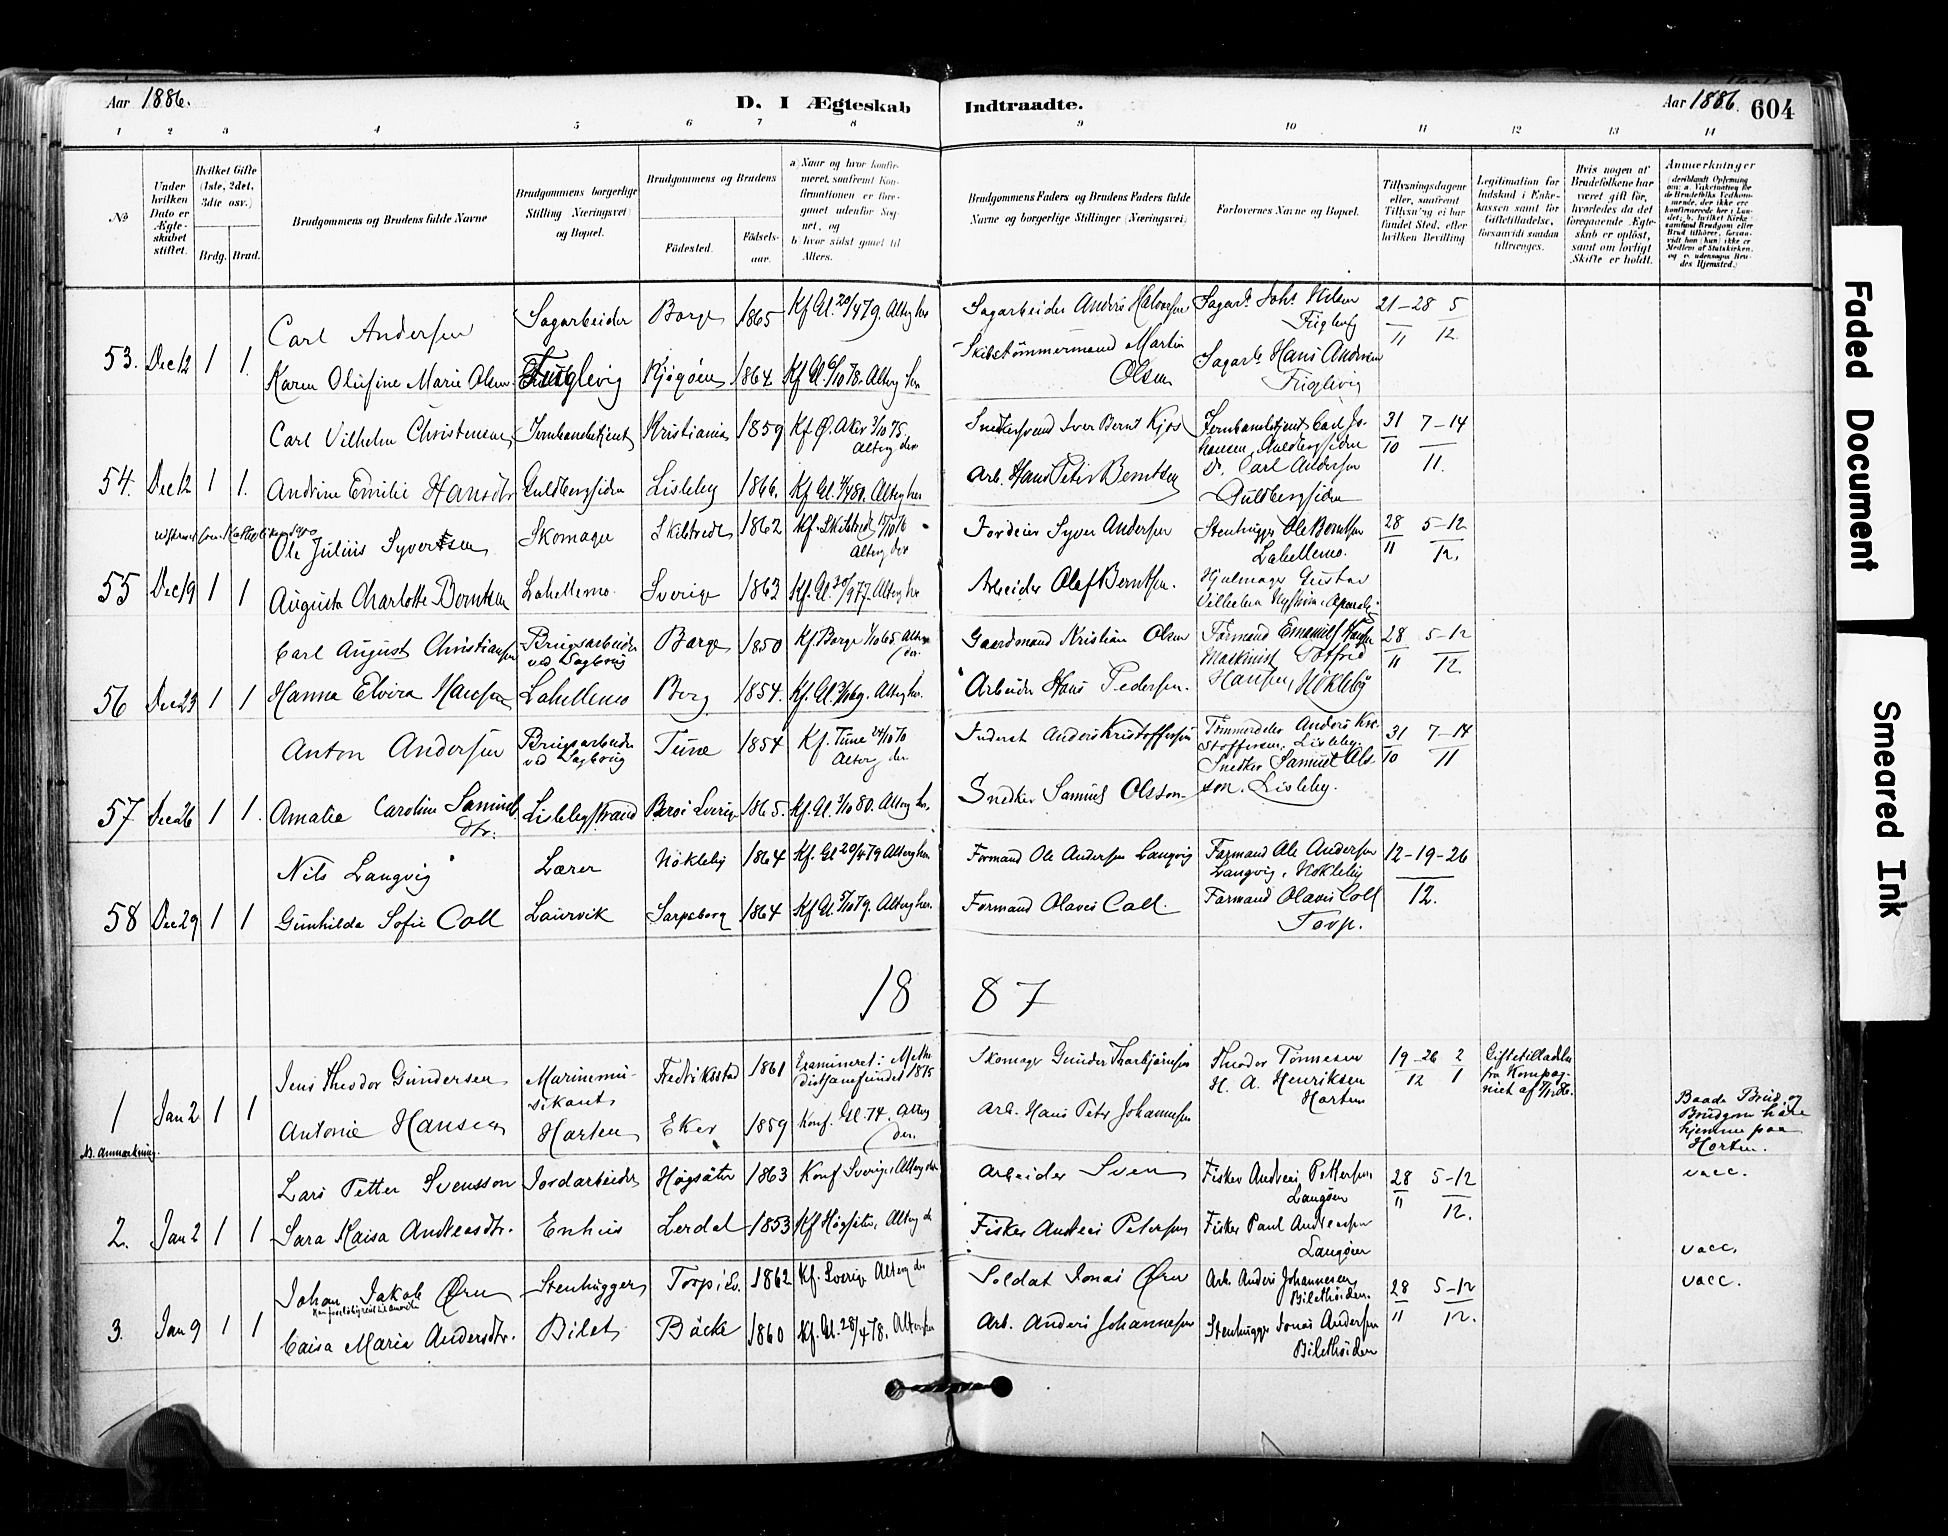 Aar 1886.
D. I Ægteskab Indtraadte.
Aar 1886. 604
1 2 3 4 5 6 7 8 9 10 11 12 13 14
No
Under hvilken Dato er Ægteskabet stiftet.
Hvilket Gifte (1ste, 2det, 3die osv.)
Brdg. Brud.
Brudgommens og Brudens fulde Navne
Brudgommens borgerlige Stilling (Næringsvei) og Bopæl.
Brudgommens og Brudens
Fødested. Fødselsaar.
a) Naar og hvor konfirmeret, saafremt Konfirmationen er foregaaet udenfor Sognet, og
b) hvor sidst gaaet til Alters.
Brudgommens Faders og Brudens Faders fulde Navne og borgerlige Stillinger (Næringsvei)
Forlovernes Navne og Bopæl.
Tillysningsdagene eller, saafremt Tillysning ei har fundet Sted, efter hvilken Bevilling
Legitimation for Indskud i Enkekassen samt for Giftetilladelse, forsaavidt saadan tiltrænges.
Hvis nogen af Brudefolkene har været gift før, hvorledes da det foregaaende Ægteskab er opløst, samt om lovligt Skifte er holdt.
Anmerkninger
53. Dec 12 1 1.
Carl Andersen Sagarbeider Borge 1865 Kf Gl. 20/4 79. Alterg her Sagarbeider Anders Halvorsen Sagarb. Johs Nilsen Fuglevig 21-28 5 / 11 12.
Karen Olufine Marie Olsen Fuglevig Kjøgöen 1864 Kf Gl. 6/10 78. Alterg her Skibstømmermand Martin Olsen Sagarb Hans Andersen Fuglevig
54. Dec 12 1 1.
Carl Vilhelm Christensen Jernbanebetjent Kristiania 1859 Kf Ø. Aker 3/10 75 Alterg der Snedkersvend Iver Bernt Kjös Jernbanebetjent Carl Johansen, Guldbergsiden 31 7-14 / 10 11.
Andrine Emilie Hansdtr Guldbergsiden Lisleby 1866. Kf. Gl. 4/4 80. Alterg her Arb. Hans Peter Berntsen Do. Carl Andersen Guldbergsiden
55 Dec 19 1 1
Ole Julius Syvertsen Skomager Skibtvedt 1862 Kf. Skibtvedt 15/10 76 Alterg der Inderst Syver Andersen Stenhugger Ole Berntsen Lahellemo. 28 5-12 / 11 12.
Augusta Charlotte Berntsen Lahellemo. Sverige 1863 Kf. Gl. 30/9 77. Alterg her Arbeider Olaf Berntsen. Hjulmager Gustav Vilhelm Nyström,
56 Dec 23 1 1
Carl August Christiansen Brugsarbeider ved Sagbrug Borge 1850 Kf Borge 1/10 65 Alterg der. Gaardmand Kristian Olsen Formand Emanuel Hansen 28 5-12 / 11 12.
Hanna Elvira Hansen Lahellemo Borg 1854. Kf. Gl. 3/10 69. Alterg her. Arbeider Hans Pedersen. Maskinist Gotfred Hansen, Nökleby
57 Dec 26 1 1.
Anton Andersen Brugsarbeider ved Sagbrug Tune 1854 Kf. Tune 24/10 70 Alterg der Inderst Anders Kristoffersen Tömmerdeler Anders Kristoffersen, Lisleby. 31 7-14 / 10 11
Amalie Caroline Samuelsdtr. Lislebystrand Sverige 1865. Kf. Gl. 3/10 80. Alterg her. Snedker Samuel Olsson Snedker Samuel Olsson. Lisleby.
58 Dec 29 1 1
Nils Langvig Lærer Nökleby 1864 Kf. Gl 20/4 79 Alterg her Formand Ole Andersen Langvig Formand Ole Andersen Langvig, Nökleby 12-19-26 / 12.
Gunhilda Sofie Coll Laurvik Sarpsborg 1864 Kf. Gl. 5/10 79. Alterg her. Formand Olaves Coll. Formand Olaves Coll Torp.
18 87
1 Jan 2 1 1
N. Anmerkning.
Jens Theodor Gundersen Marinemusikant Fredriksstad 1861 Examineret i Methodistsamfundet 1875 Skomager Gunder Thorbjørnsen Theodor Tönnesen 19-26 2 / 12 1 Giftetilladelse fra Kompagniet af 7/12 86.
Antonie Hansen Horten Eker 1859 Konf. Gl. 74. Alterg der Arb. Hans Petr Johannesen H. A. Henriksen Horten
Baade Brud og Brudgom høre hjemme paa Horten.
2. Jan 2 1 1
Lars Petter Svensson Jordarbeider Högsäter 1863 Konf Sverige, Alterg der Arbeider Sven Fisker Andreas Pettersen, Langöen 28 5-12 / 11 12. vacc.
Sara Kaisa Andreasdtr. Enhus Lerdal 1853 Kf Högsäter, Alterg der Fisker Andreas Petersen Fisker Paul Andreassen Langöen vacc.
3. Jan 9 1 1
Johan Jakob Ørn Stenhugger Torp i Sv. 1862 Kf. Sverige Alterg der Soldat Jonas Ørn Arb. Anders Johannesen, Bilethöiden. 28 5-12 / 11 12. vacc.
Caisa Maria Andersdtr. Bilet Bäcke 1860 Kf. Gl. 28/4 78. Alterg her Arb. Anders Johannesen Stenhugger Jonas Andersen Bilethöiden
Faded Document
Smeared Ink